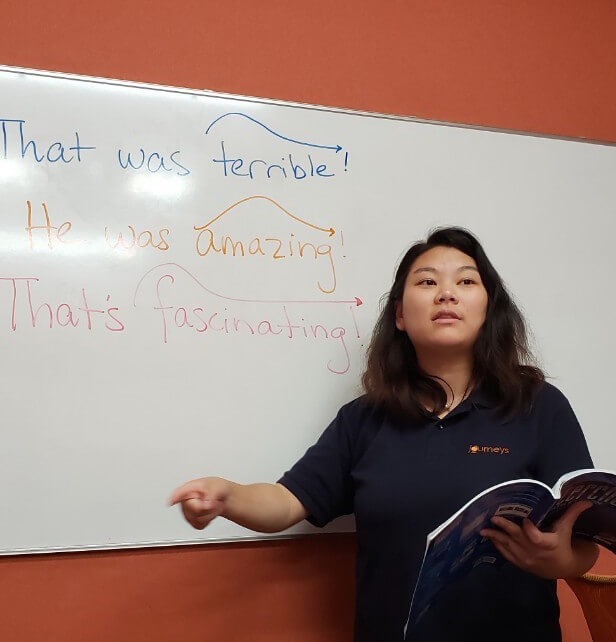 That was terrible!
He was amazing!
That's fascinating!
journeys